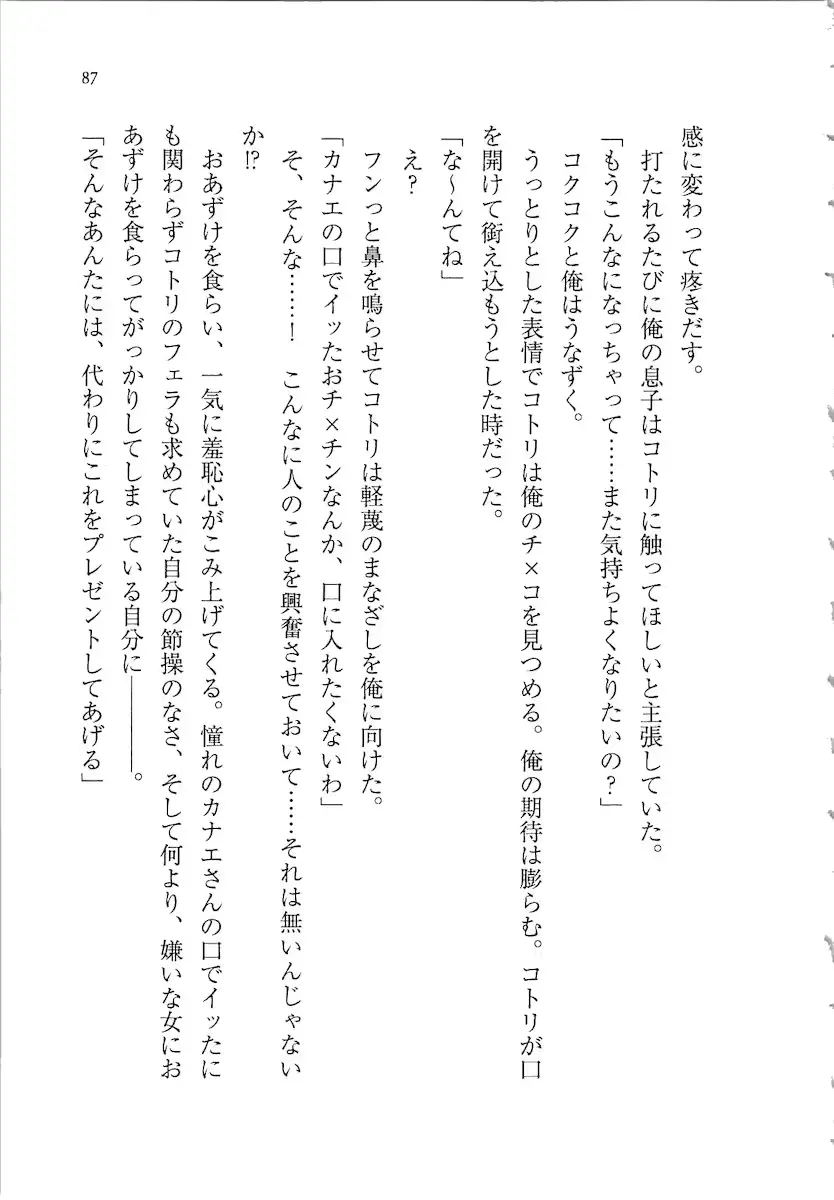 感に変わって疼きだす。
打たれるたびに俺の息子はコトリに触ってほしいと主張していた。
「もうこんなになっちゃって……また気持ちよくなりたいの？」
コクコクと俺はうなずく。
うっとりとした表情でコトリは俺のチ×コを見つめる。俺の期待は膨らむ。コトリが口
を開けて銜え込もうとした時だった。
「な～んてね」
え？
フンっと鼻を鳴らせてコトリは軽蔑のまなざしを俺に向けた。
「カナエの口でイッたおチ×チンなんか、口に入れたくないわ」
そ、そんな……！　こんなに人のことを興奮させておいて……それは無いんじゃない
か!?
おあずけを食らい、一気に羞恥心がこみ上げてくる。憧れのカナエさんの口でイッたに
も関わらずコトリのフェラも求めていた自分の節操のなさ、そして何より、嫌いな女にお
あずけを食らってがっかりしてしまっている自分に――――。
「そんなあんたには、代わりにこれをプレゼントしてあげる」
87